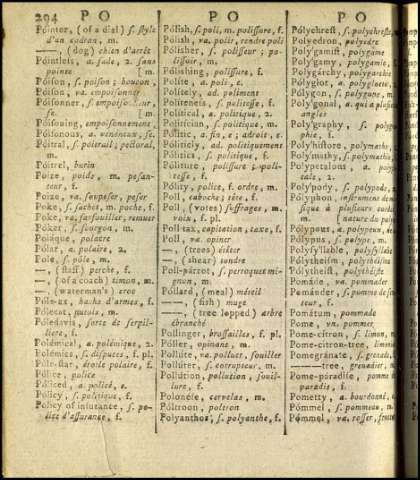 294 PO PO PO
Póinter, (of a dial) s. style
d'un cadran, m.
——, (dog) chien d'arrêt
Póintless, a. fade, 2. sans
pointe [m.
Póison, s. poison; boucon,
Póison, va. empoisonner
Póisonner, s. empoisonneur,
se. [m.
Póisoning, empoisonnement,
Póisonous, a. venéneux, se.
Póitral, s. poitrail; pectoral,
m.
Póitrel, burin
Poize, poids, m. pesan-
teur, f.
Poize, va. soupeser, peser
Poke, s. sachet, poche, f.
Poke, va. farfouiller, remuer
Póker, s. fourgon, m.
Poláque, polacre
Pólar, a. polaire, 2.
Pole, s. pôle, m.
—, (staff) perche, f.
—, (of a coach) timon, m.
—, (waterman's) croc
Póle-ax, hache d'armes, f.
Pólecat, putois, m.
Póledavis, sorte de serpil-
liere, f.
Polémical, a. polémique, 2.
Polémics, s. disputes, f. pl.
Póle-star, étoile polaire, f.
Police, police
Policed, a. policé, e.
Pólicy, s. politique, f.
Policy of insurance, s. po-
lice d'assurance, f.
Pólish, s. poli, m. polissure, f.
Pólish, va. polir, rendre poli
Pólisher, s. polisseur; po-
lissoir, m.
Pólishing, polissure, f.
Políte, a. poli, e.
Polítely, ad. poliment
Políteness, s. politesse, f.
Polítical, a. politique, 2.
Politícian, s. politique, m.
Pólitic, a. fin, e; adroit, e.
Pólitícly, ad. politiquement
Pólitics, s. politique, f.
Póliture, polissure; poli-
tesse, f.
Pólity, police, f. ordre, m.
Poll, caboche; tête, f.
Poll, (votes) suffrages, m.
voix, f. pl.
Poll-tax, capitation, taxe, f.
Poll, va. opiner
—, (trees) étêter
—, (shear) tondre
Poll-párrot, s. perroquet mi-
gnon, m.
Póllard, (meal) méteil
——, (fish) muge
——, (tree lopped) arbre
ébranché
Póllinger, broussailles, f. pl.
Póller, opinant, m.
Pollúte, va. polluer, souiller
Pollúter, s. corrupteur, m.
Pollútion, pollution, souil-
lure, f.
Polonése, cervelas, m.
Póltroon, poltron
Polyánthos, s. polyanthe, f.
Pólychrest, s. polychreste,
Polyedron, polyedre
Polýgamist, polygame
Polýgamy, polygamie,
Polýgarchy, polygarchie
Pólyglot, a. polyglotte,
Pólygon, s. polygone, m.
Polýgonal, a. qui a plusieurs
angles
Polýgraphy, s. polygra-
phie, f.
Polyhístore, polymathe,
Polýmathy, s. polymathie,
Polypétalous, a. polypé-
tale, 2.
Pólypody, s. polypode,
Pólyphon, retentement de
sique à plusieurs cordes
m. (nature du po
Pólypous, a. polypeux, de
Pólypus, s. polype, m.
Polysýllable, polysyllabe
Pólytheism, polythéisme
Pólytheist, polythéiste
Pomáde, va. pommader
Pománder, s. pomme de sen-
teur, f.
Pomátum, pommade
Pome, vn. pommer
Pome-cítron, s. limon, m
Pome-citron-tree, limonier
Pomegránate, s. grenade,
———-tree, grenadier, m
Pome-páradise, pomme de
paradis, f.
Pometty, a. bourdonné,
Pómmel, s. pommeau, m.
Pómmel, va. rosser, frotter